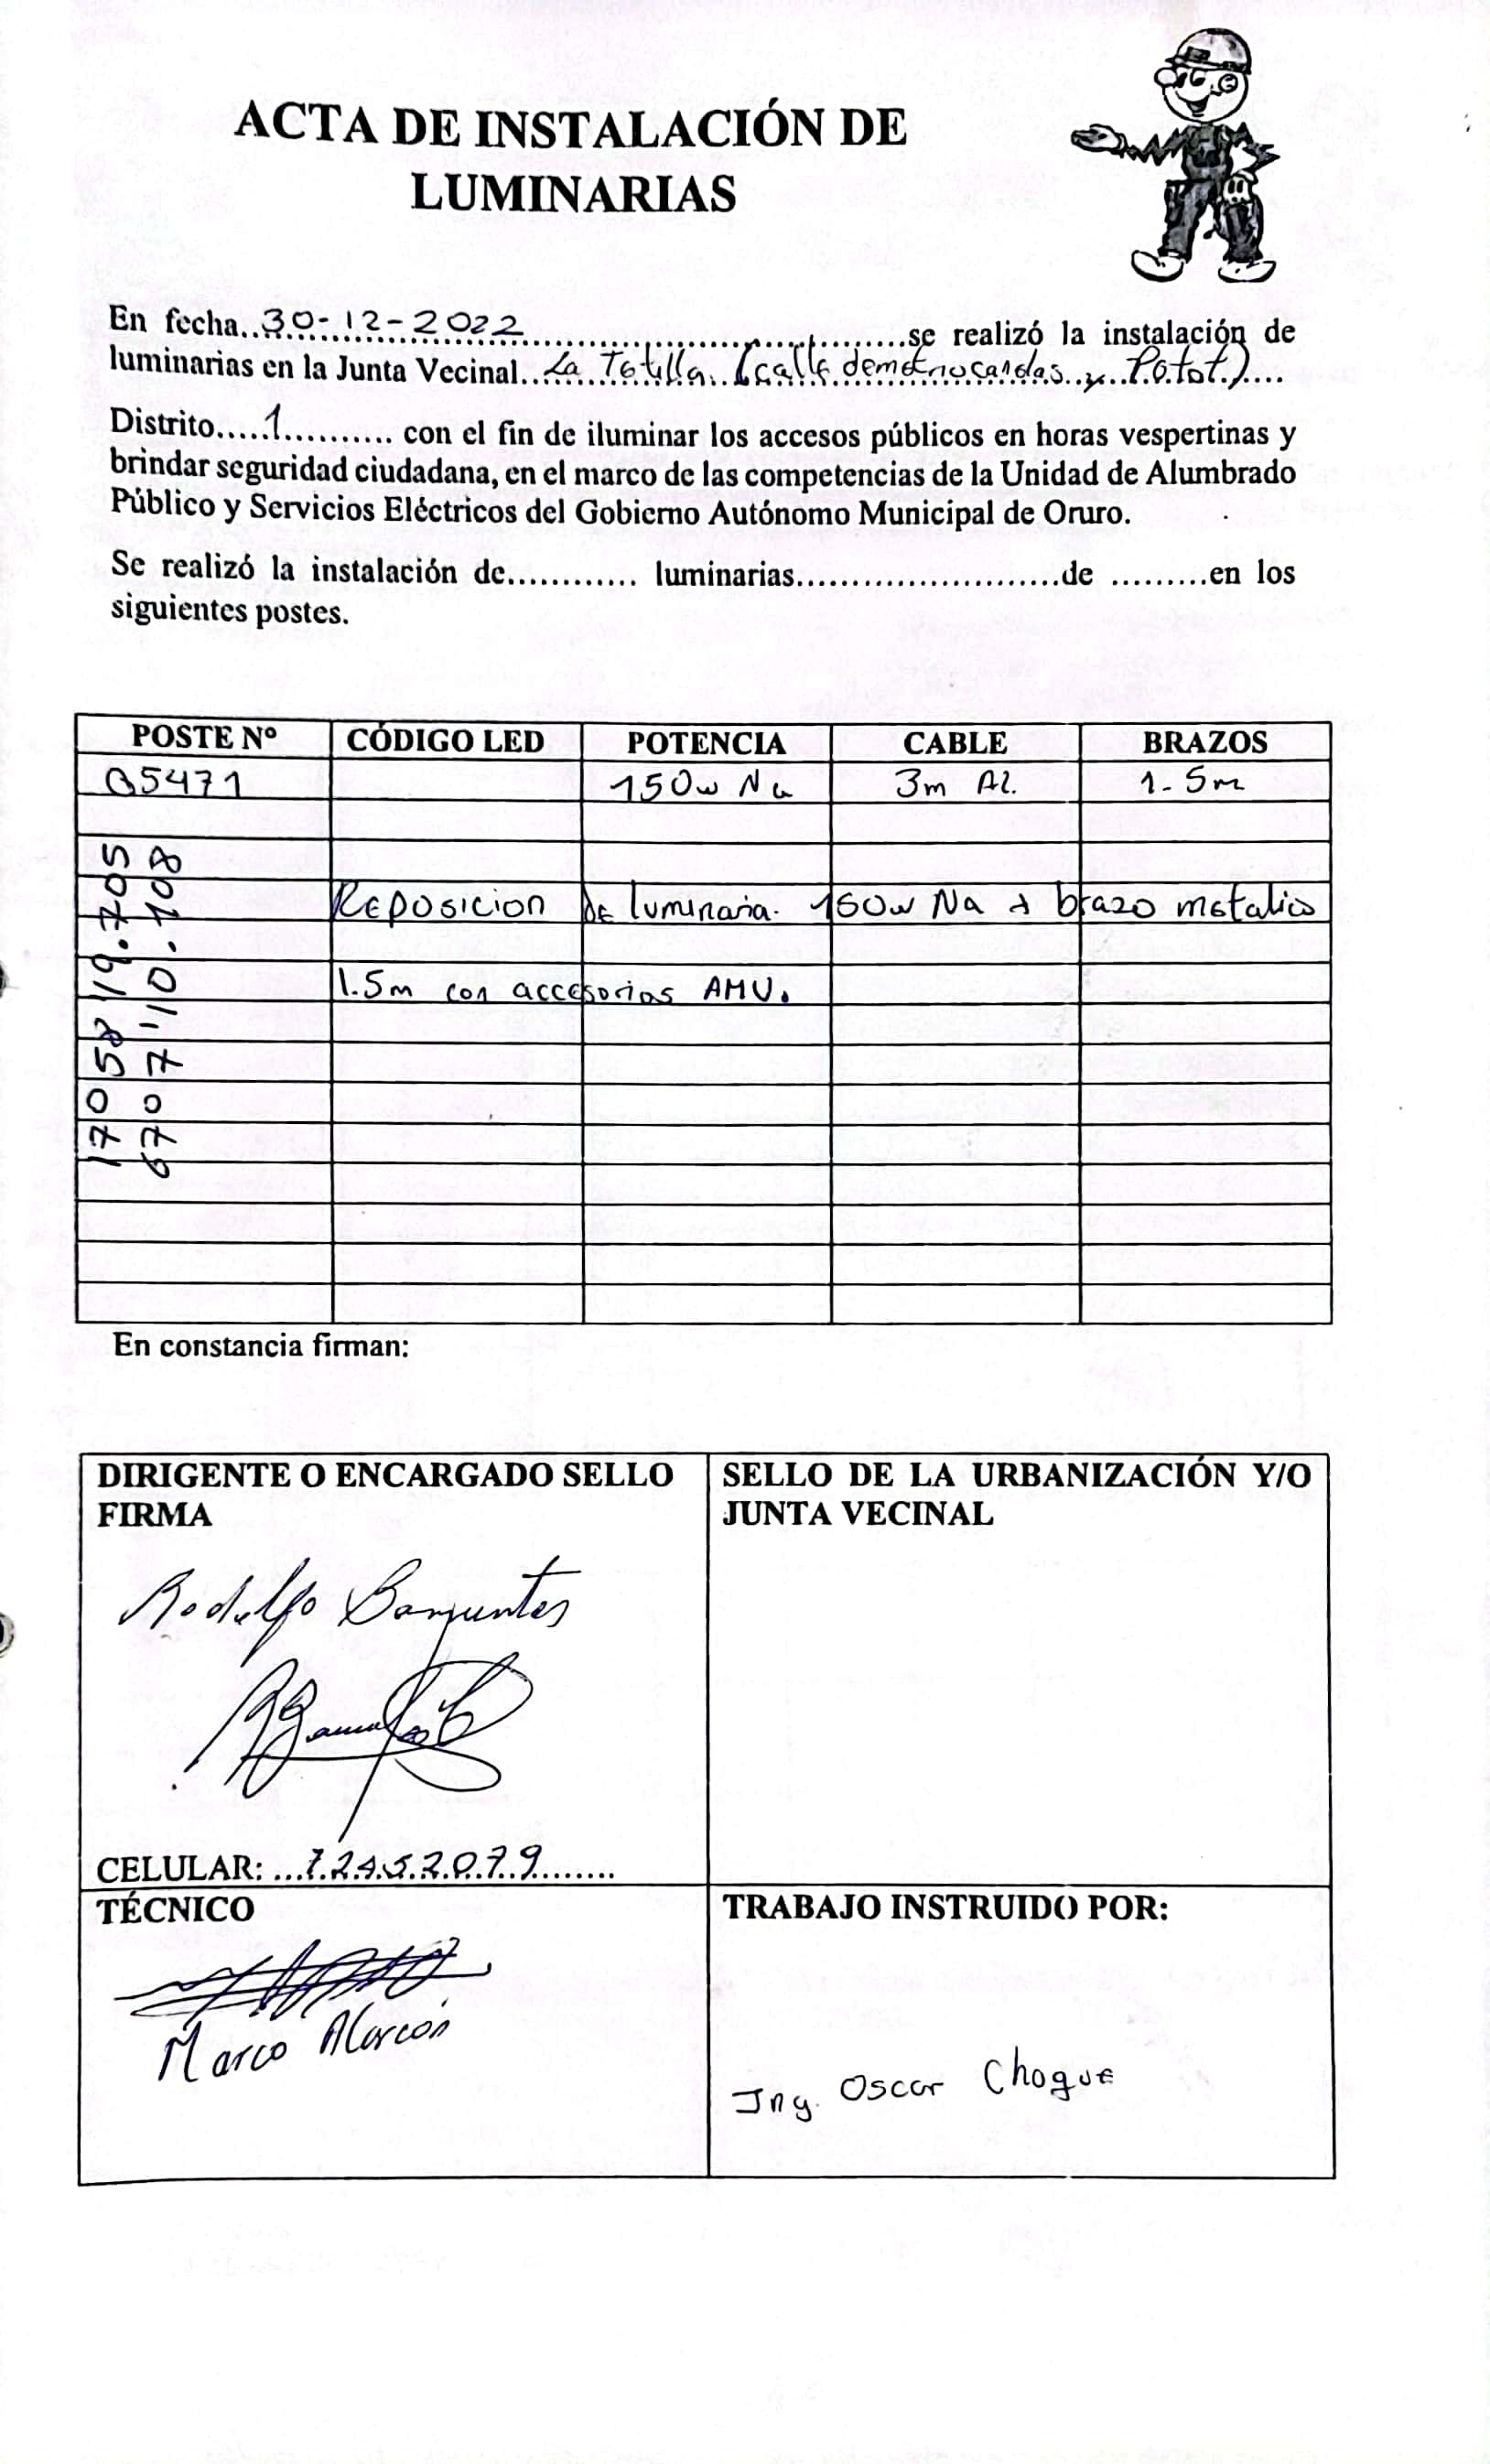 ACTA DE INSTALACIÓN DE
LUMINARIAS
En fecha..30-12-2022..........se realizó la instalación de
luminarias en la Junta Vecinal...La Totilla (calle y Potot)....
Distrito.....1.......... con el fin de iluminar los accesos públicos en horas vespertinas y
brindar seguridad ciudadana, en el marco de las competencias de la Unidad de Alumbrado
Público y Servicios Eléctricos del Gobierno Autónomo Municipal de Oruro.
Se realizó la instalación de............ luminarias.......................de .........en los
siguientes postes.
POSTE Nº CÓDIGO LED POTENCIA CABLE BRAZOS
05471 150w Na 3m Al. 1.5m
Reposicion de luminaria 150w Na + brazo metalico
1.5m con accesorios AMU.
En constancia firman:
DIRIGENTE O ENCARGADO SELLO
FIRMA
Rodolfo
CELULAR: ...72452079.......
SELLO DE LA URBANIZACIÓN Y/O
JUNTA VECINAL
TÉCNICO
Marco Alarcón
TRABAJO INSTRUIDO POR:
Ing. Oscar Choque